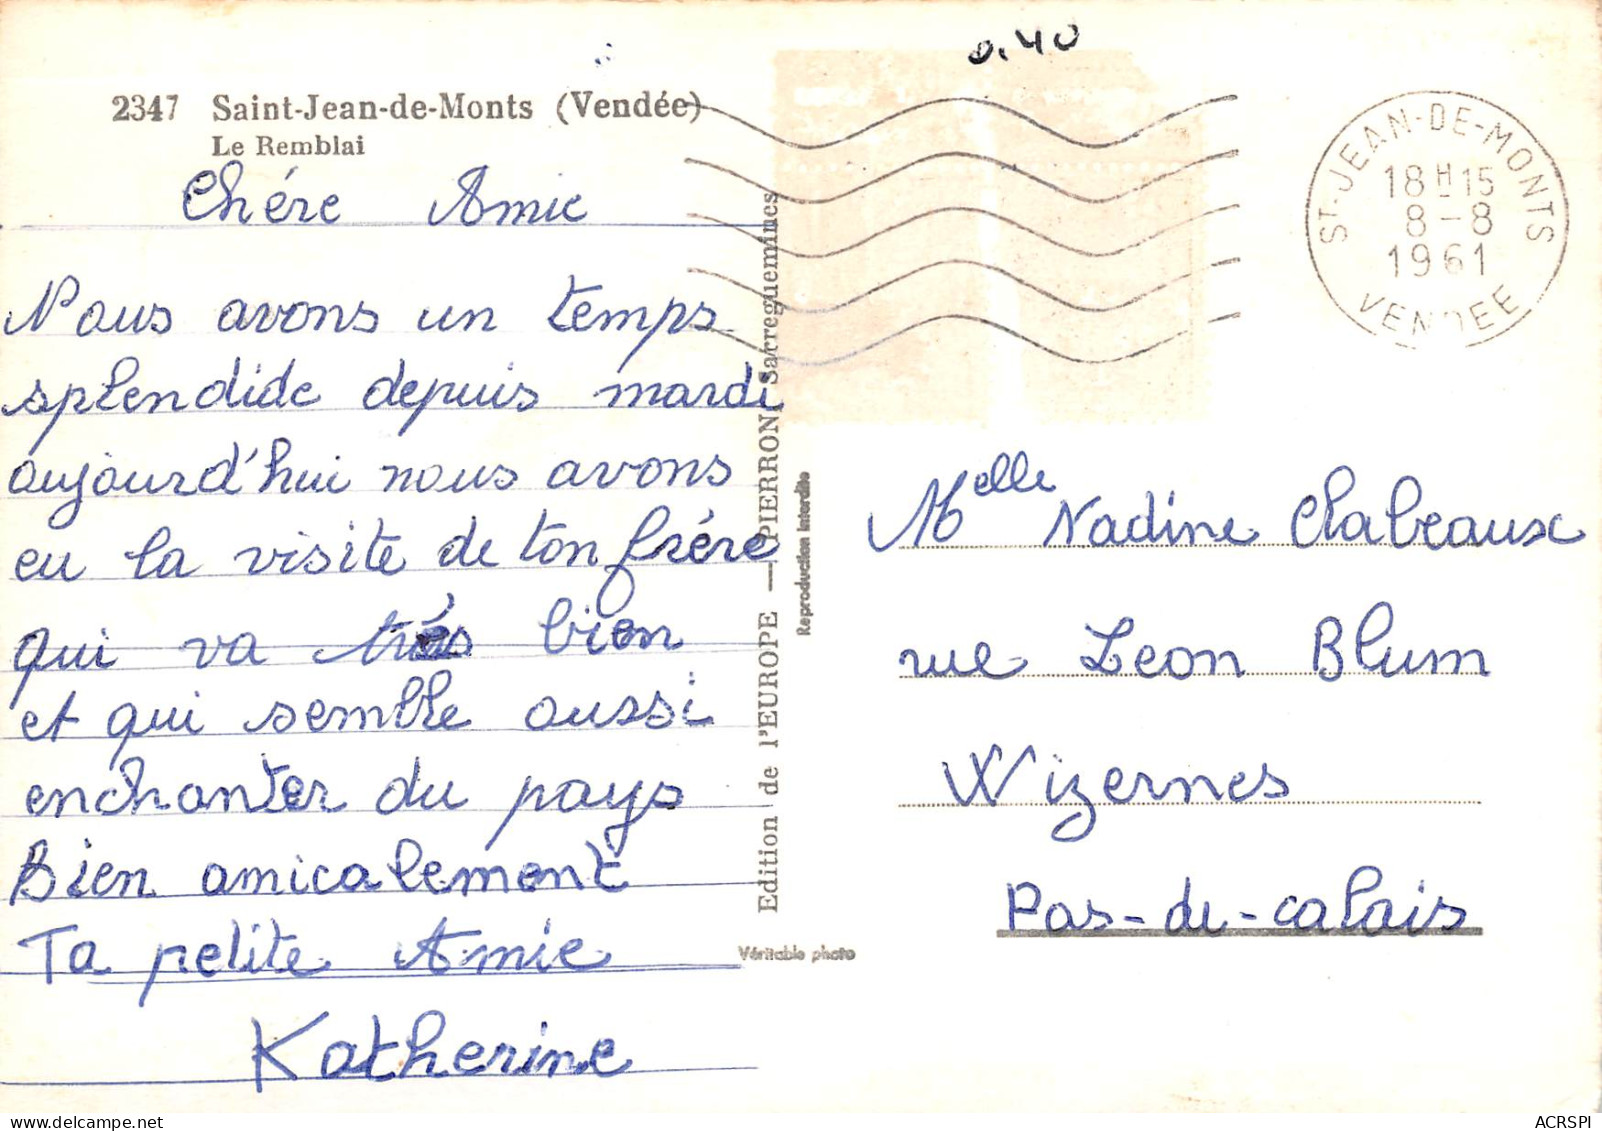 0.40
2347 Saint-Jean-de-Monts (Vendée)
Le Remblai
Chére Amie
Nous avons un temps
splendide depuis mardi
aujourd'hui nous avons
eu la visite de ton frére
qui va trés bien
et qui semble aussi
enchanter du pays
Bien amicalement
Ta petite Amie
Katherine
Edition de l'EUROPE — PIERRON, Sarreguemines
Reproduction interdite
Véritable photo
ST-JEAN-DE-MONTS
18H15
8-8
1961
VENDEE
Melle Nadine Chabeaux
rue Leon Blum
Wizernes
Pas-de-calais
ACRSPI